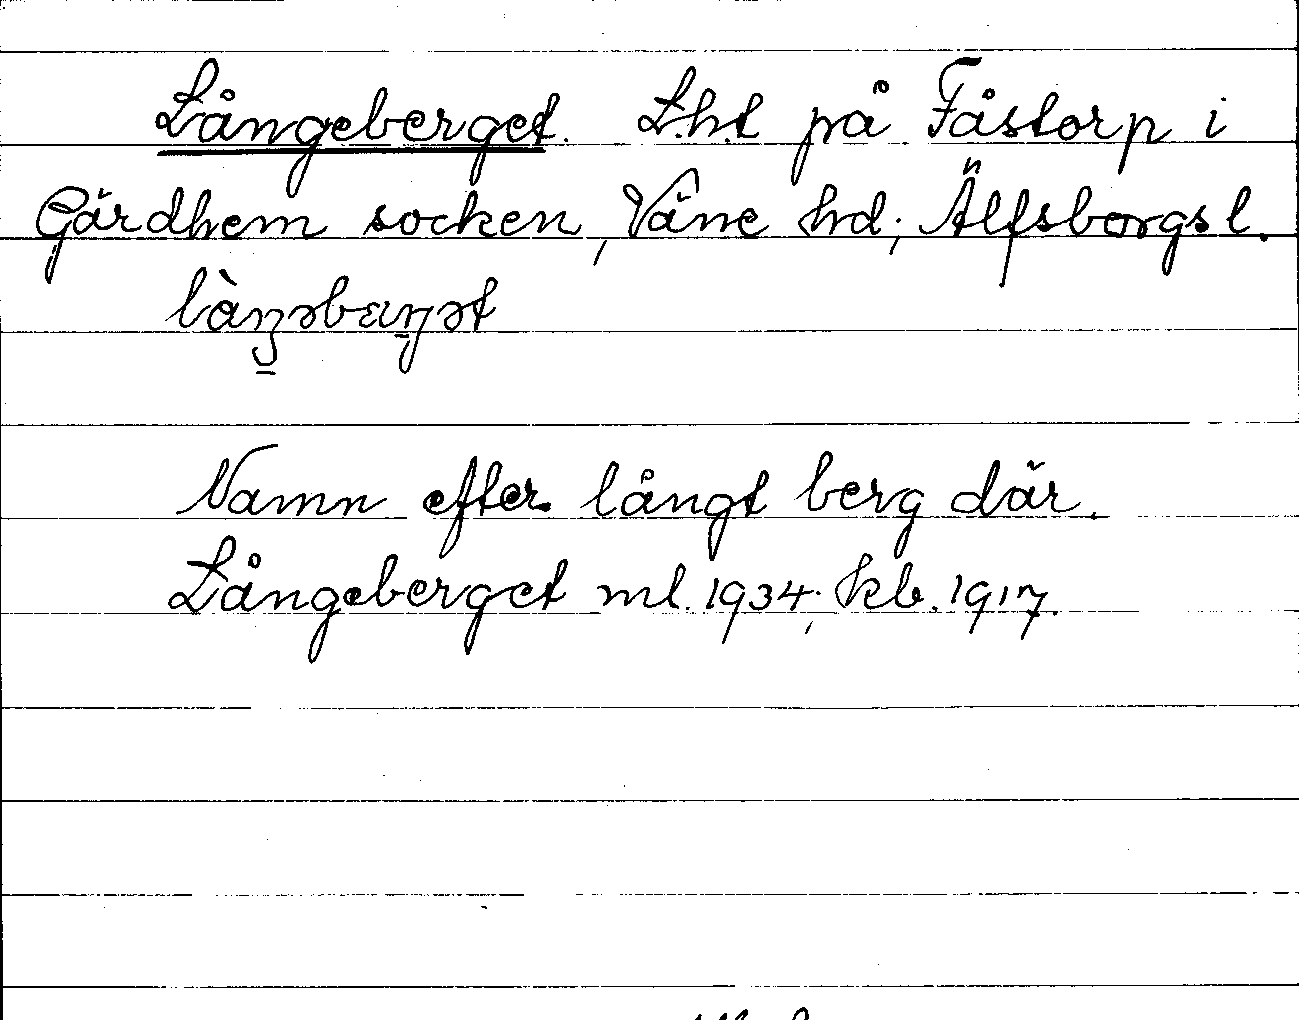 Långeberget. L.h.t på Fåstorp i
Gärdhem socken, Väne hd; Älfsborgs l.
Namn efter långt berg där.
Långeberget ml. 1934; kb. 1917.